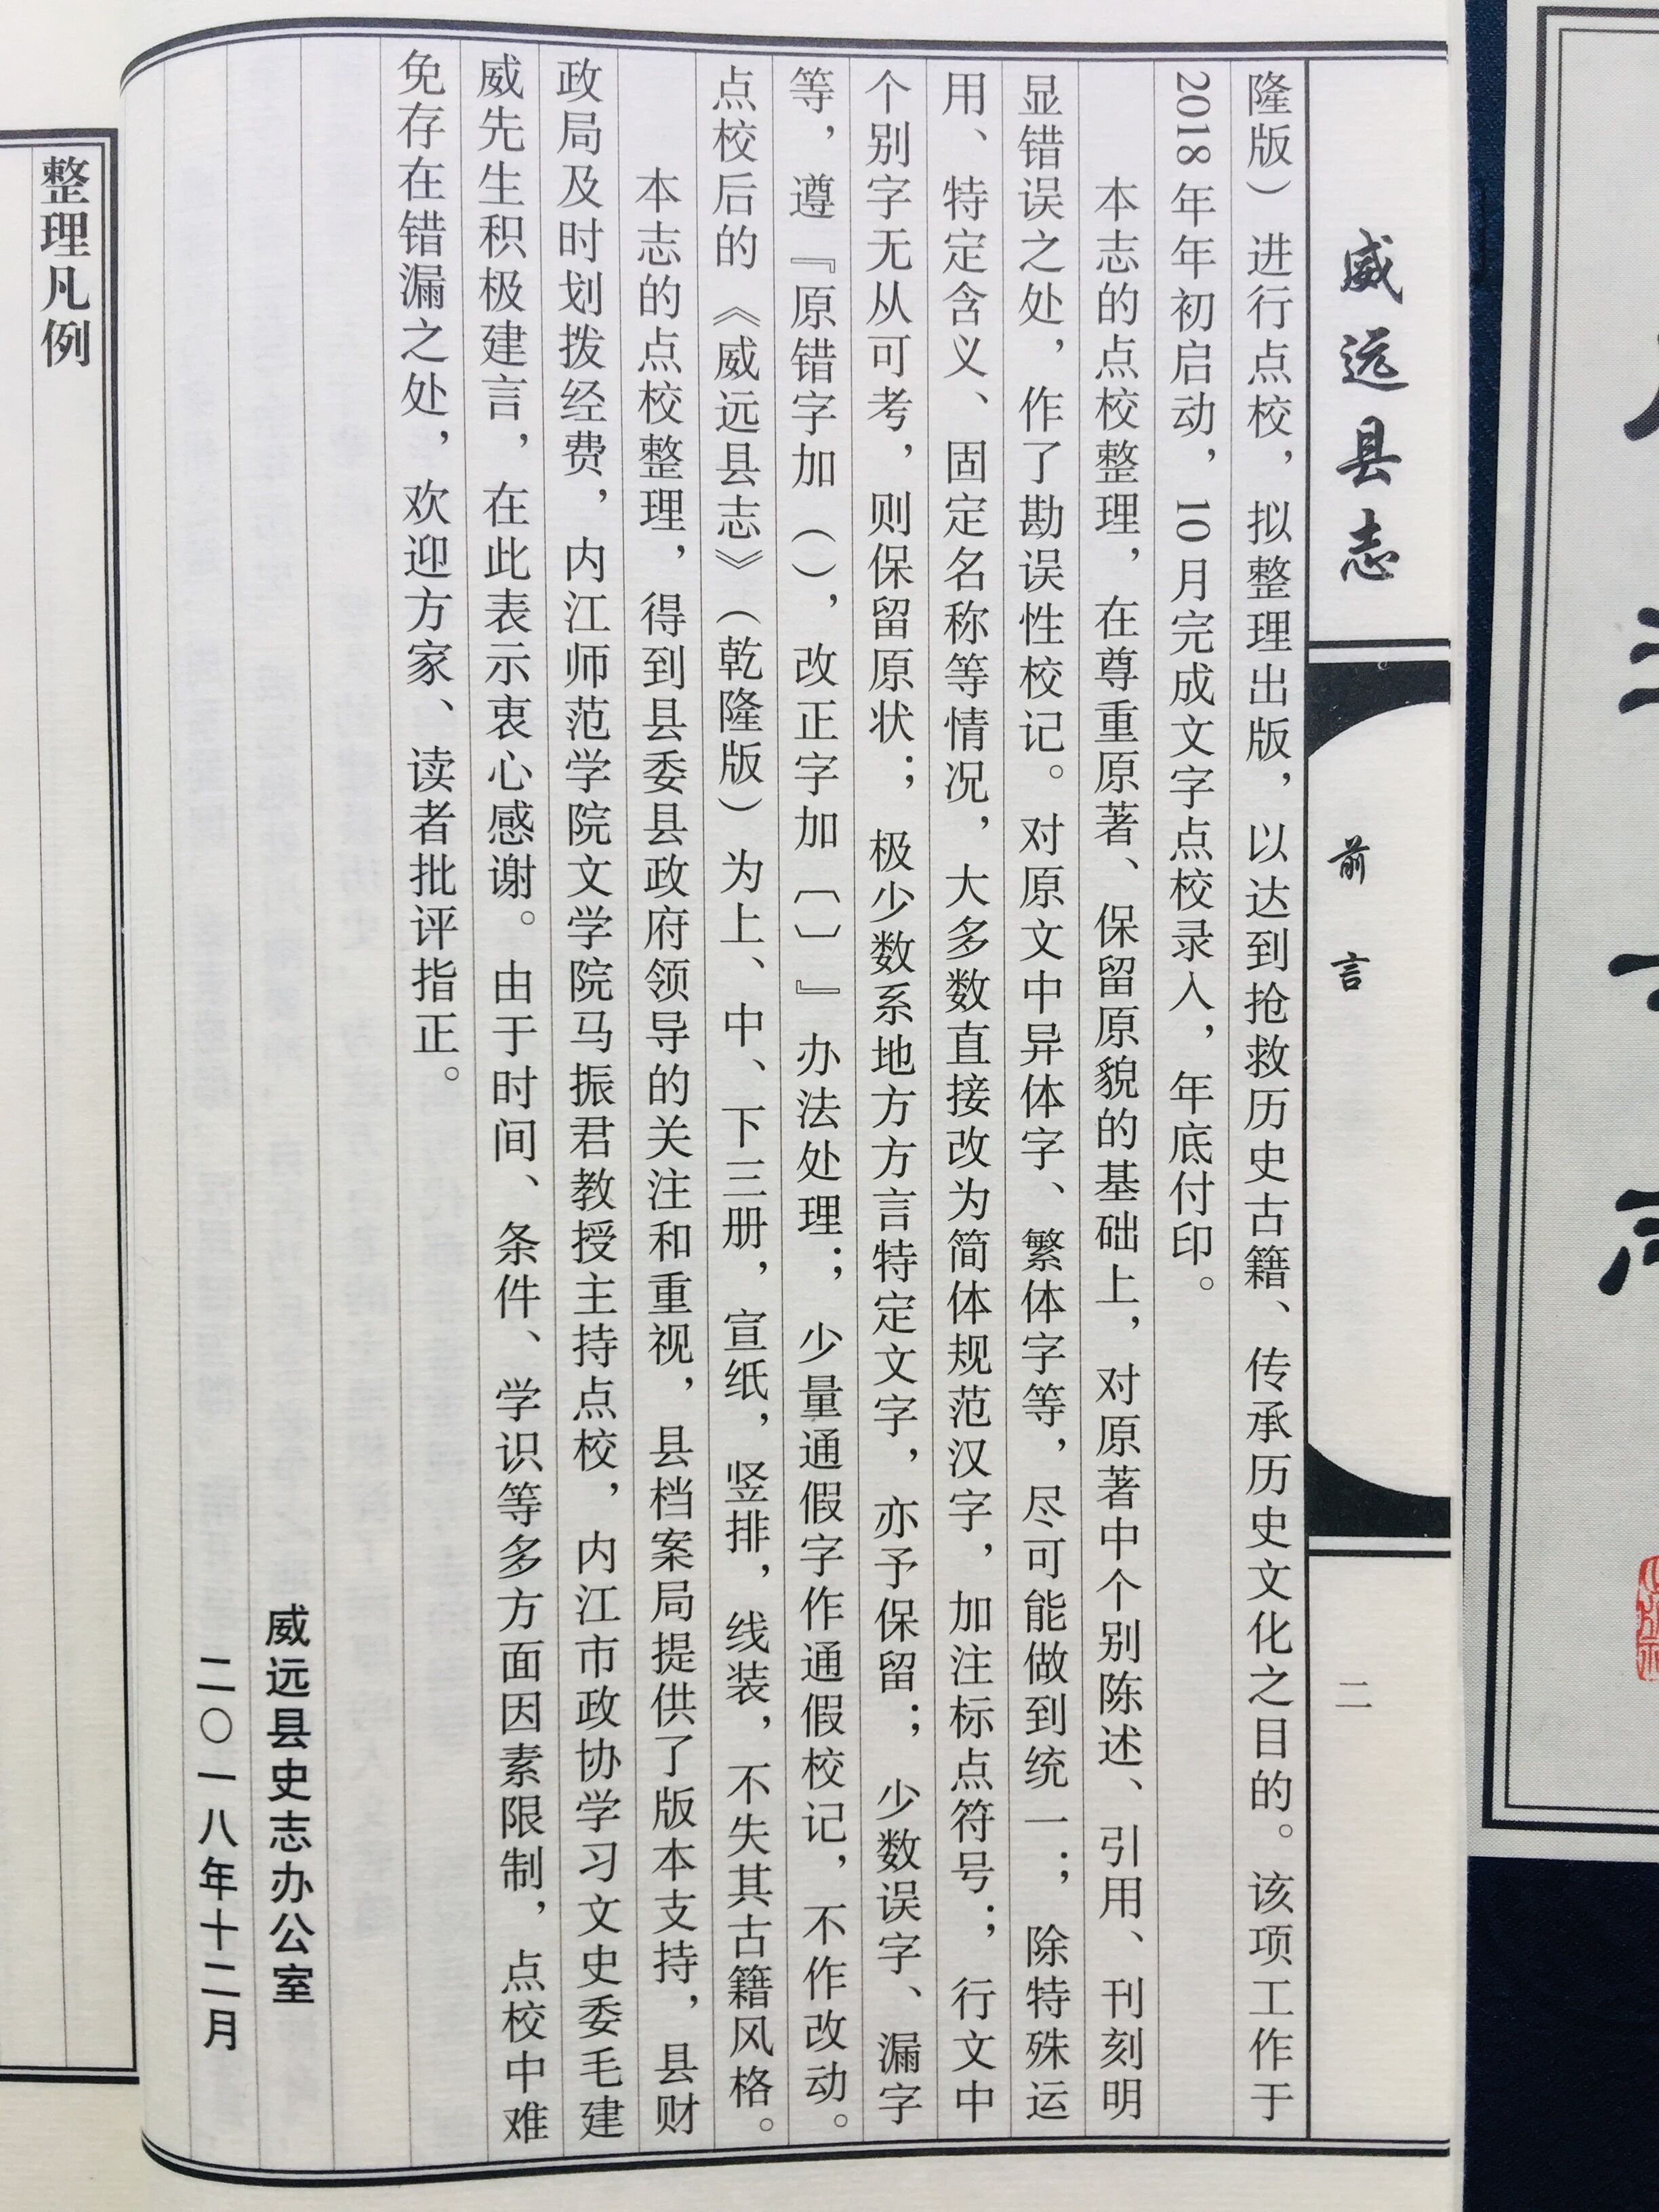 威远县志
前言
二
隆版）进行点校，拟整理出版，以达到抢救历史古籍、传承历史文化之目的。该项工作于
2018年年初启动，10月完成文字点校录入，年底付印。
本志的点校整理，在尊重原著、保留原貌的基础上，对原著中个别陈述、引用、刊刻明
显错误之处，作了勘误性校记。对原文中异体字、繁体字等，尽可能做到统一；除特殊运
用、特定含义、固定名称等情况，大多数直接改为简体规范汉字，加注标点符号；行文中
个别字无从可考，则保留原状；极少数系地方方言特定文字，亦予保留；少数误字、漏字
等，遵『原错字加（），改正字加〔〕』办法处理；少量通假字作通假校记，不作改动。
点校后的《威远县志》（乾隆版）为上、中、下三册，宣纸，竖排，线装，不失其古籍风格。
本志的点校整理，得到县委县政府领导的关注和重视，县档案局提供了版本支持，县财
政局及时划拨经费，内江师范学院文学院马振君教授主持点校，内江市政协学习文史委毛建
威先生积极建言，在此表示衷心感谢。由于时间、条件、学识等多方面因素限制，点校中难
免存在错漏之处，欢迎方家、读者批评指正。
威远县史志办公室
二〇一八年十二月
整理凡例